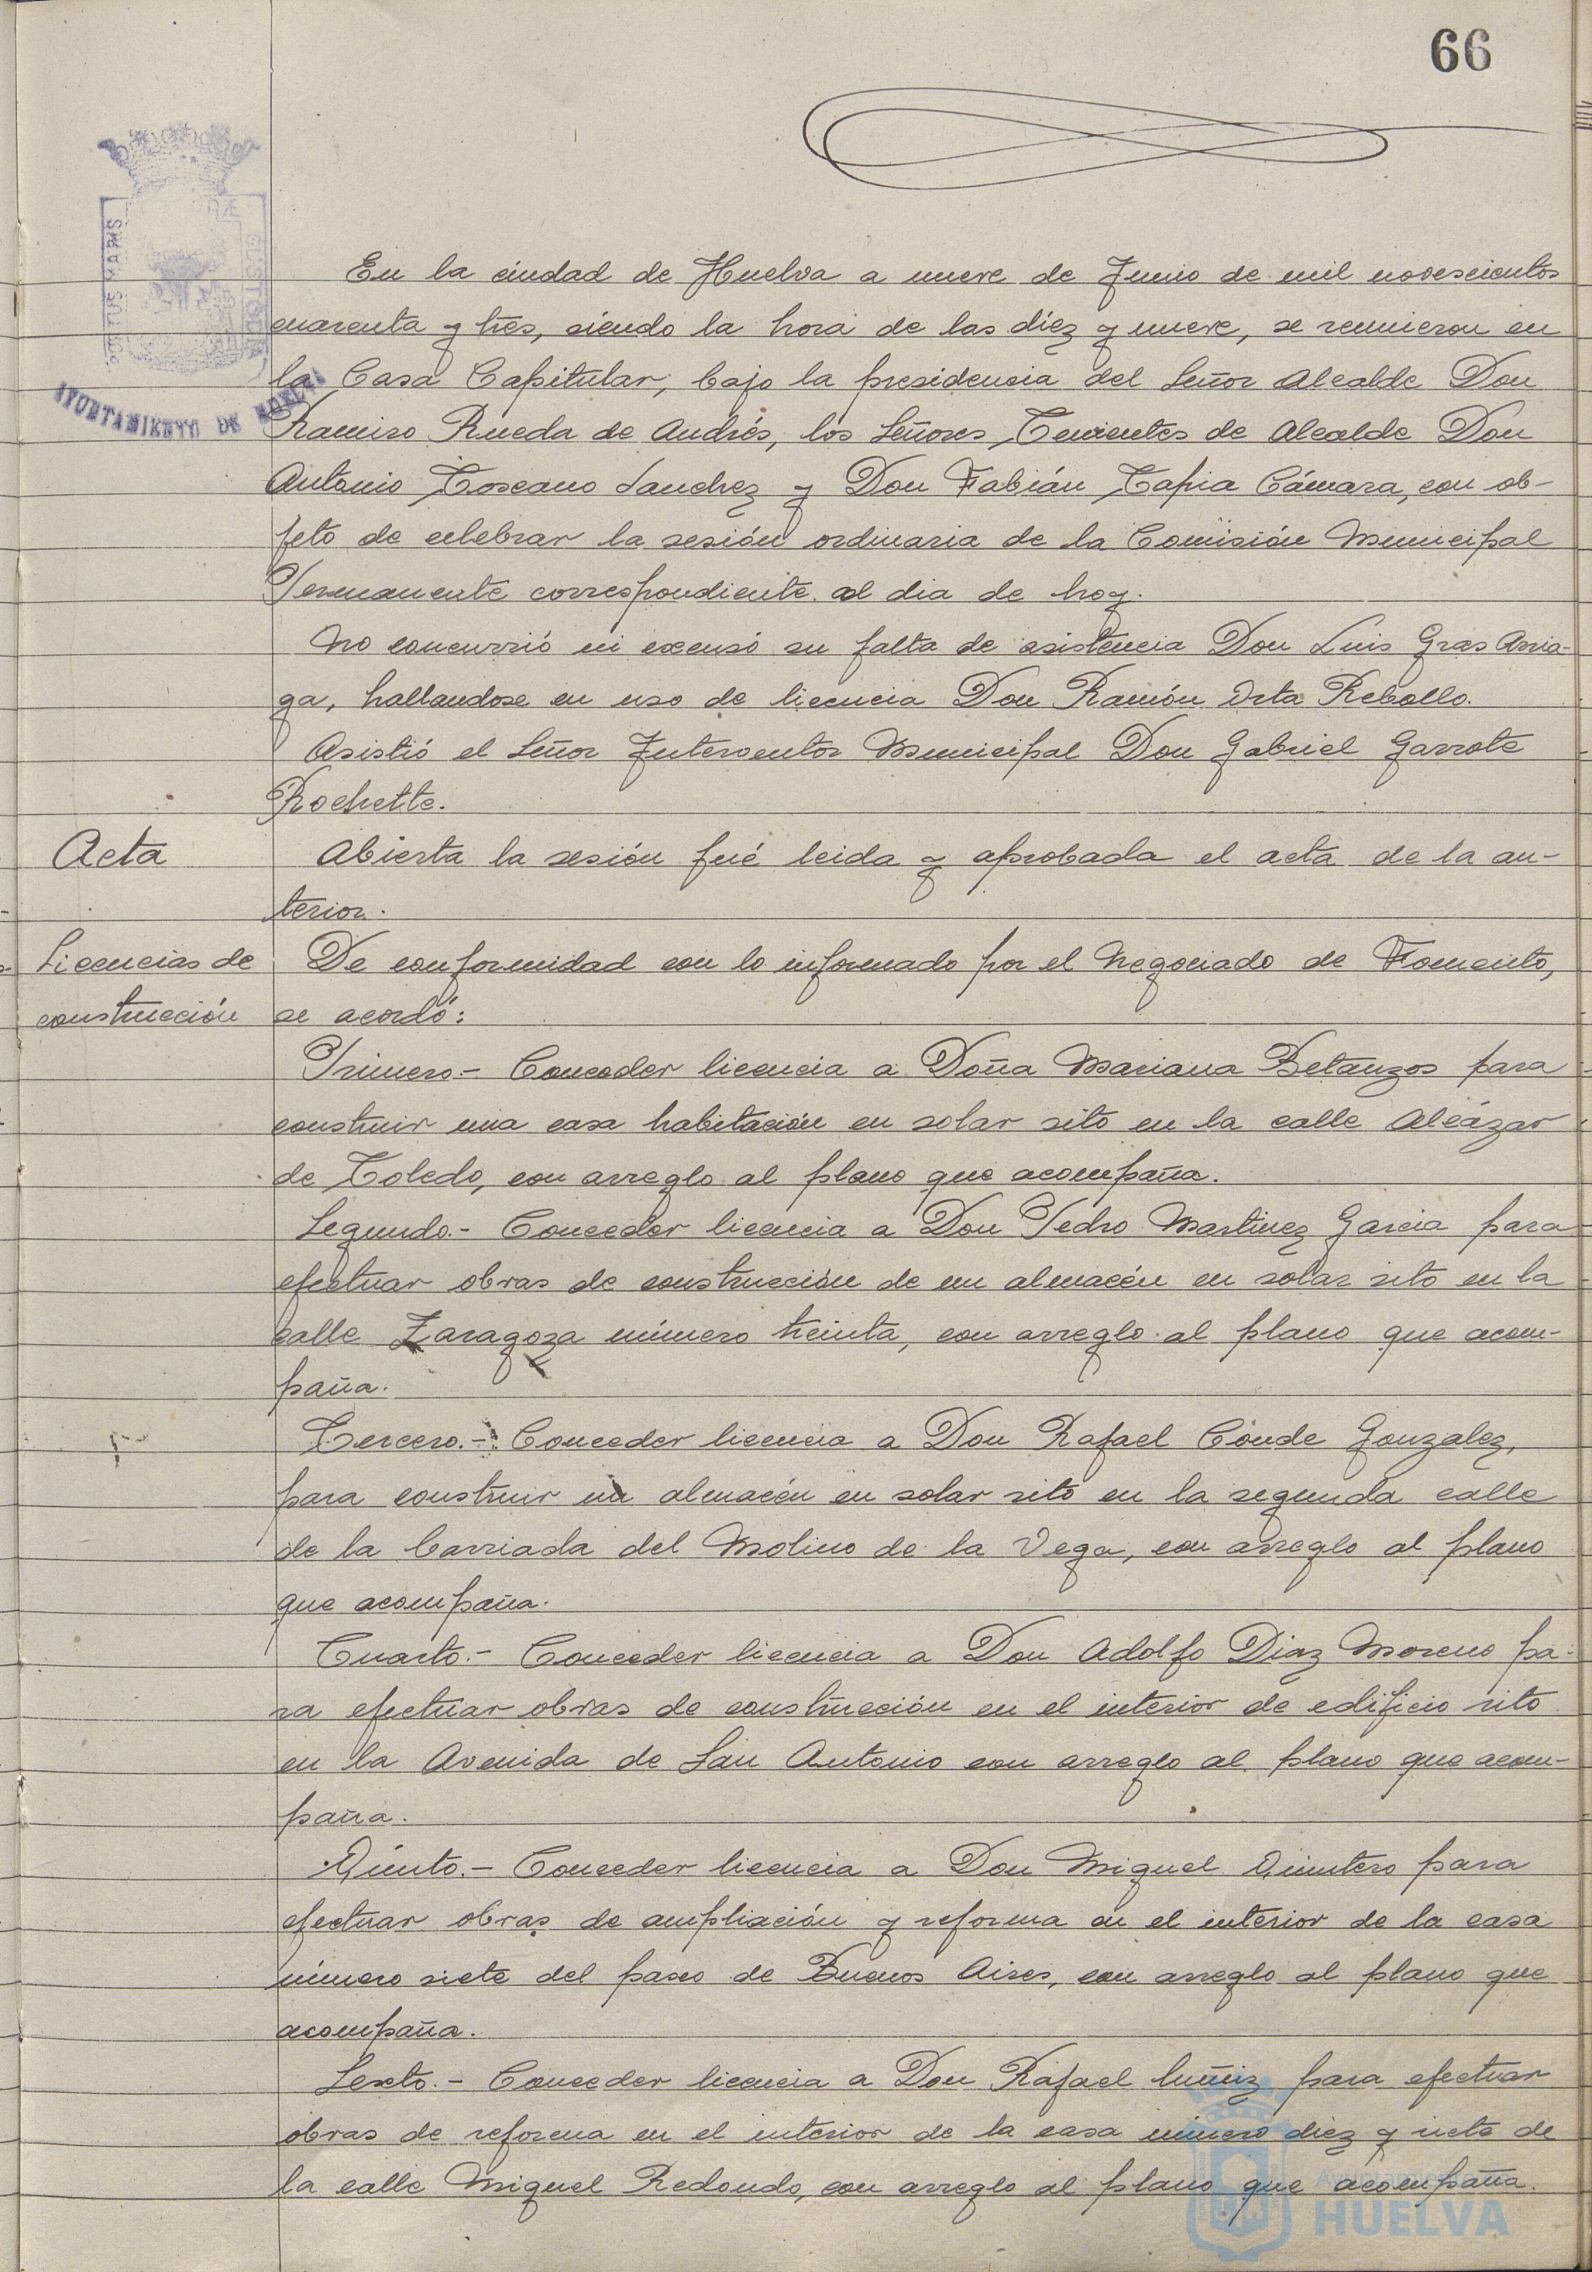 66
PORTUS MARIS
CUSTODIA
AYUNTAMIENTO DE HUELVA
En la ciudad de Huelva a nueve de Junio de mil novescientos
cuarenta y tres, siendo la hora de las diez y nueve, se reunieron en
la Casa Capitular, bajo la presidencia del Señor Alcalde Don
Ramiro Rueda de Andrés, los Señores Tenientes de Alcalde Don
Antonio Toscano Sanchez y Don Fabián Tapia Cámara, con ob-
jeto de celebrar la sesión ordinaria de la Comisión Municipal
Permanente correspondiente al dia de hoy.
No concurrió ni excusó su falta de asistencia Don Luis Gras Arria-
ga, hallandose en uso de licencia Don Ramón Orta Rebollo.
Asistió el Señor Interventor Municipal Don Gabriel Garrote
Rochette.
Acta
Abierta la sesión fué leida y aprobada el acta de la an-
terior.
Licencias de
construcción
De conformidad con lo informado por el Negociado de Fomento,
se acordó:
Primero.- Conceder licencia a Doña Mariana Betanzos para
construir una casa habitación en solar sito en la calle Alcázar
de Toledo, con arreglo al plano que acompaña.
Segundo.- Conceder licencia a Don Pedro Martinez Garcia para
efectuar obras de construcción de un almacén en solar sito en la
calle Zaragoza número treinta, con arreglo al plano que acom-
paña.
Tercero.- Conceder licencia a Don Rafael Conde Gonzalez,
para construir un almacén en solar sito en la segunda calle
de la barriada del Molino de la Vega, con arreglo al plano
que acompaña.
Cuarto.- Conceder licencia a Don Adolfo Diaz Moreno pa-
ra efectuar obras de construcción en el interior de edificio sito
en la Avenida de San Antonio con arreglo al plano que acom-
paña.
Quinto.- Conceder licencia a Don Miguel Quintero para
efectuar obras de ampliación y reforma en el interior de la casa
número siete del paseo de Buenos Aires, con arreglo al plano que
acompaña.
Sexto.- Conceder licencia a Don Rafael Muñiz para efectuar
obras de reforma en el interior de la casa número diez y siete de
la calle Miguel Redondo, con arreglo al plano que acompaña.
Ayuntamiento de
HUELVA